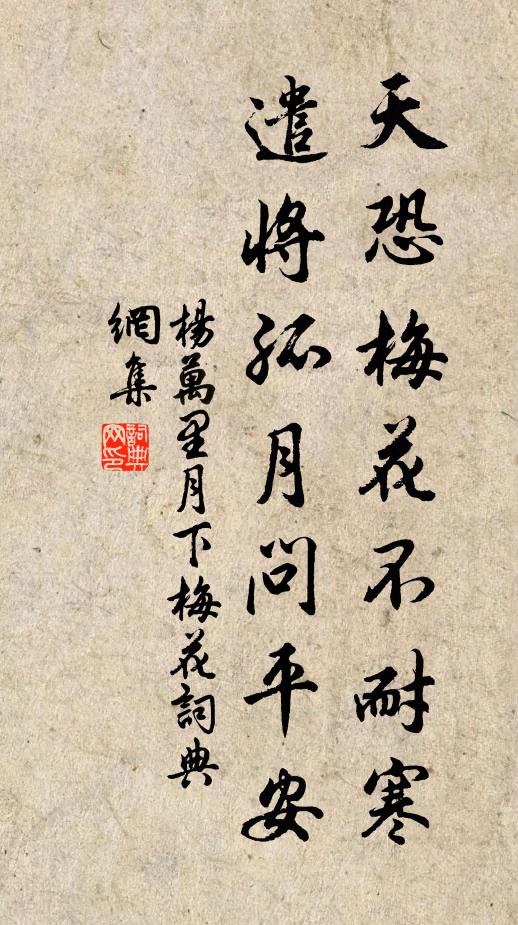 天恐梅花不耐寒
遣將孤月問平安
楊萬里月下梅花詞典
網集
詞典
网印